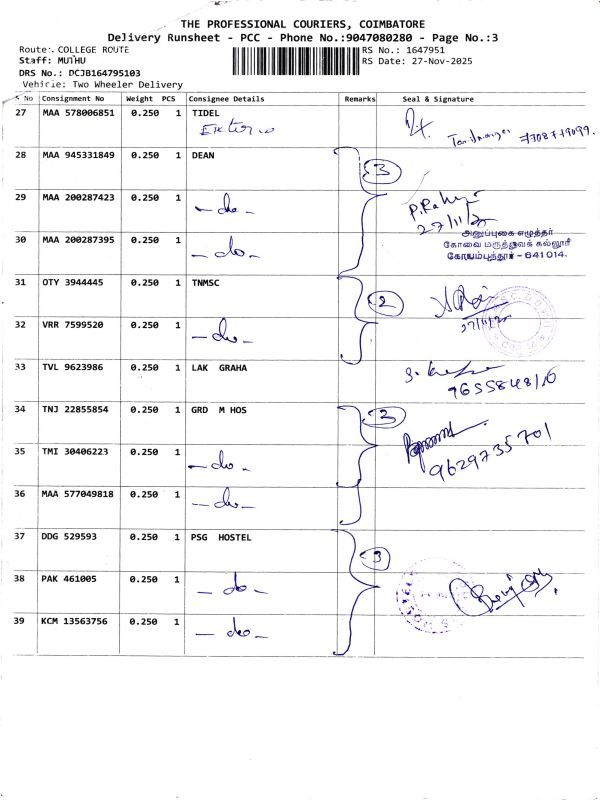 THE PROFESSIONAL COURIERS, COIMBATORE
Delivery Runsheet - PCC - Phone No.:9047080280 - Page No.:3
Route:. COLLEGE ROUTE
RS No.: 1647951
Staff: MUTHU
RS Date: 27-Nov-2025
DRS No.: DCJB164795103
Vehicle: Two Wheeler Delivery
S No Consignment No Weight PCS Consignee Details Remarks Seal & Signature
27 MAA 578006851 0.250 1 TIDEL
7708719099
28 MAA 945331849 0.250 1 DEAN
3
29 MAA 200287423 0.250 1 - do -
P. Rahul
27/11/2
30 MAA 200287395 0.250 1 - do -
அனுப்புகை எழுத்தர்
கோவை மருத்துவக் கல்லூரி
கோயம்புத்தூர் - 641 014.
31 OTY 3944445 0.250 1 TNMSC
2
32 VRR 7599520 0.250 1 - do -
33 TVL 9623986 0.250 1 LAK GRAHA
34 TNJ 22855854 0.250 1 GRD M HOS
9629735701
35 TMI 30406223 0.250 1 - do -
36 MAA 577049818 0.250 1 - do -
37 DDG 529593 0.250 1 PSG HOSTEL
3
38 PAK 461005 0.250 1 - do -
39 KCM 13563756 0.250 1 - do -